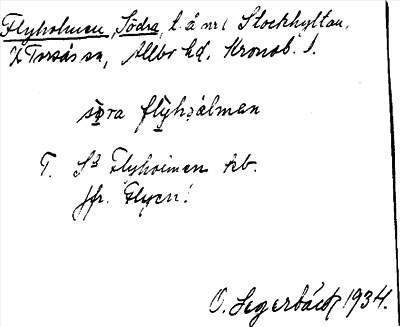 Flyholmen, Södra, t. å nr 1 Stockhyltan,
V. Torsås sn, Allbo hd, Kronob. l.
søra flyhoålmen
T. Sa Flyholmen kb.
Jfr. Flyen!
O. Segerbäck 1934.